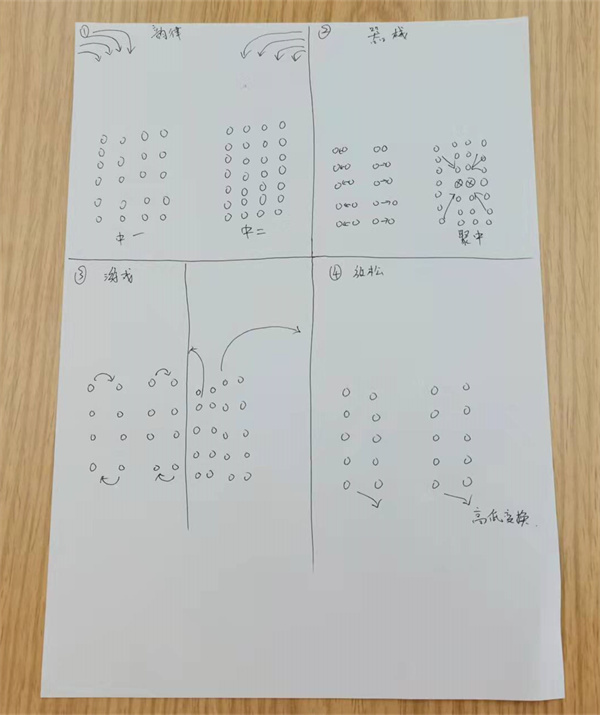 ① 韵律
② 器械
中一
中二
聚中
③ 游戏
④ 放松
高低变换.